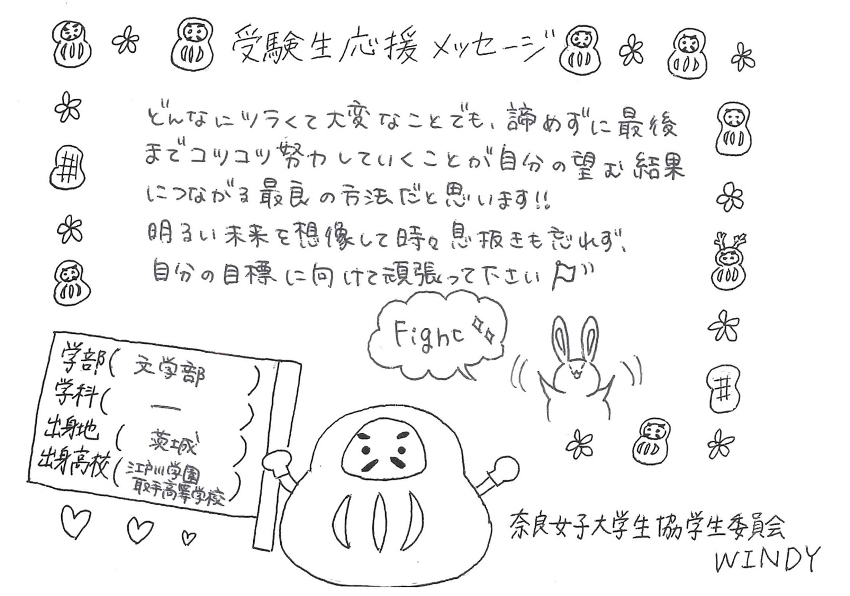 受験生応援メッセージ
どんなにツラくて大変なことでも、諦めずに最後
までコツコツ努力していくことが自分の望む結果
につながる最良の方法だと思います!!
明るい未来を想像して時々息抜きも忘れず、
自分の目標に向けて頑張って下さい
Fight
学部( 文学部 )
学科( ー )
出身地( 茨城 )
出身高校( 江戸川学園
取手高等学校 )
奈良女子大学生協学生委員会
WINDY